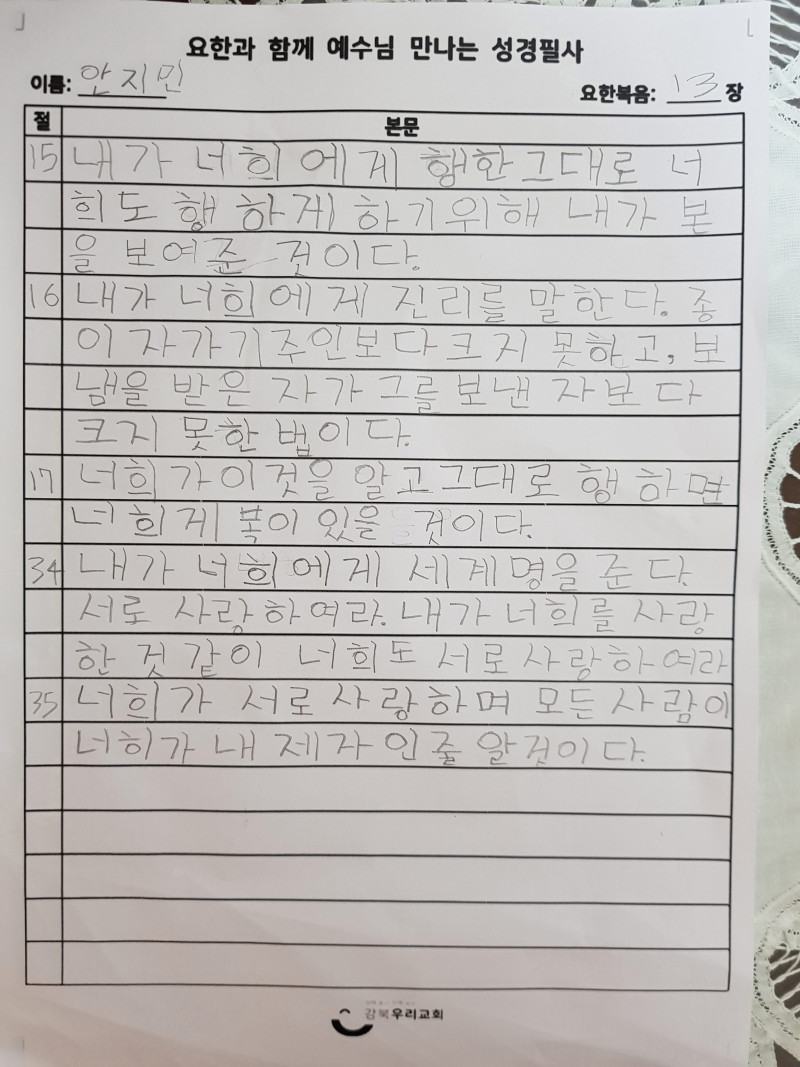 요한과 함께 예수님 만나는 성경필사
이름: 안지민
요한복음: 13 장
절 본문
15 내가 너희에게 행한그대로 너
희도 행하게 하기위해 내가 본
을 보여준 것이다.
16 내가 너희에게 진리를 말한다. 종
이 자가기주인보다크지 못하고, 보
냄을 받은 자가그를 보낸 자보다
크지 못한 법이다.
17 너희가이것을 알고그대로 행하면
너희게 복이 있을 것이다.
34 내가 너희에게 세계명을 준다.
서로 사랑하여라. 내가 너희를 사랑
한 것 같이 너희도 서로사랑하여라
35 너희가 서로사랑하며 모든사람이
너히가 내 제자인줄 알것이다.
강북우리교회